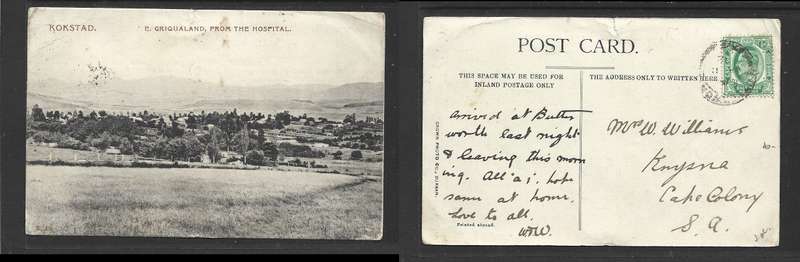 KOKSTAD.
E. GRIQUALAND, FROM THE HOSPITAL.
POST CARD.
THIS SPACE MAY BE USED FOR
INLAND POSTAGE ONLY
THE ADDRESS ONLY TO WRITTEN HERE
arrived at Butter
worth last night
& leaving this morn
ing. All 'a 1', hope
same at home.
Love to all.
WW.
Printed abroad.
CROWN PHOTO CO., DURBAN.
Mrs W. Williams
Knysna
Cape Colony
S. A.